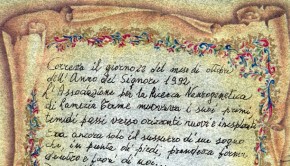 Correva il giorno 23 del mese di ottobre
dell'Anno del Signore 1992
l'Associazione per la Ricerca Neurogenetica
di Lamezia Terme muoveva i suoi primi
timidi passi verso orizzonti nuovi e inesplorati
Era ancora solo il sussurro di un sogno
che, in punta di piedi, prendeva forma
dentro e fuori di noi.